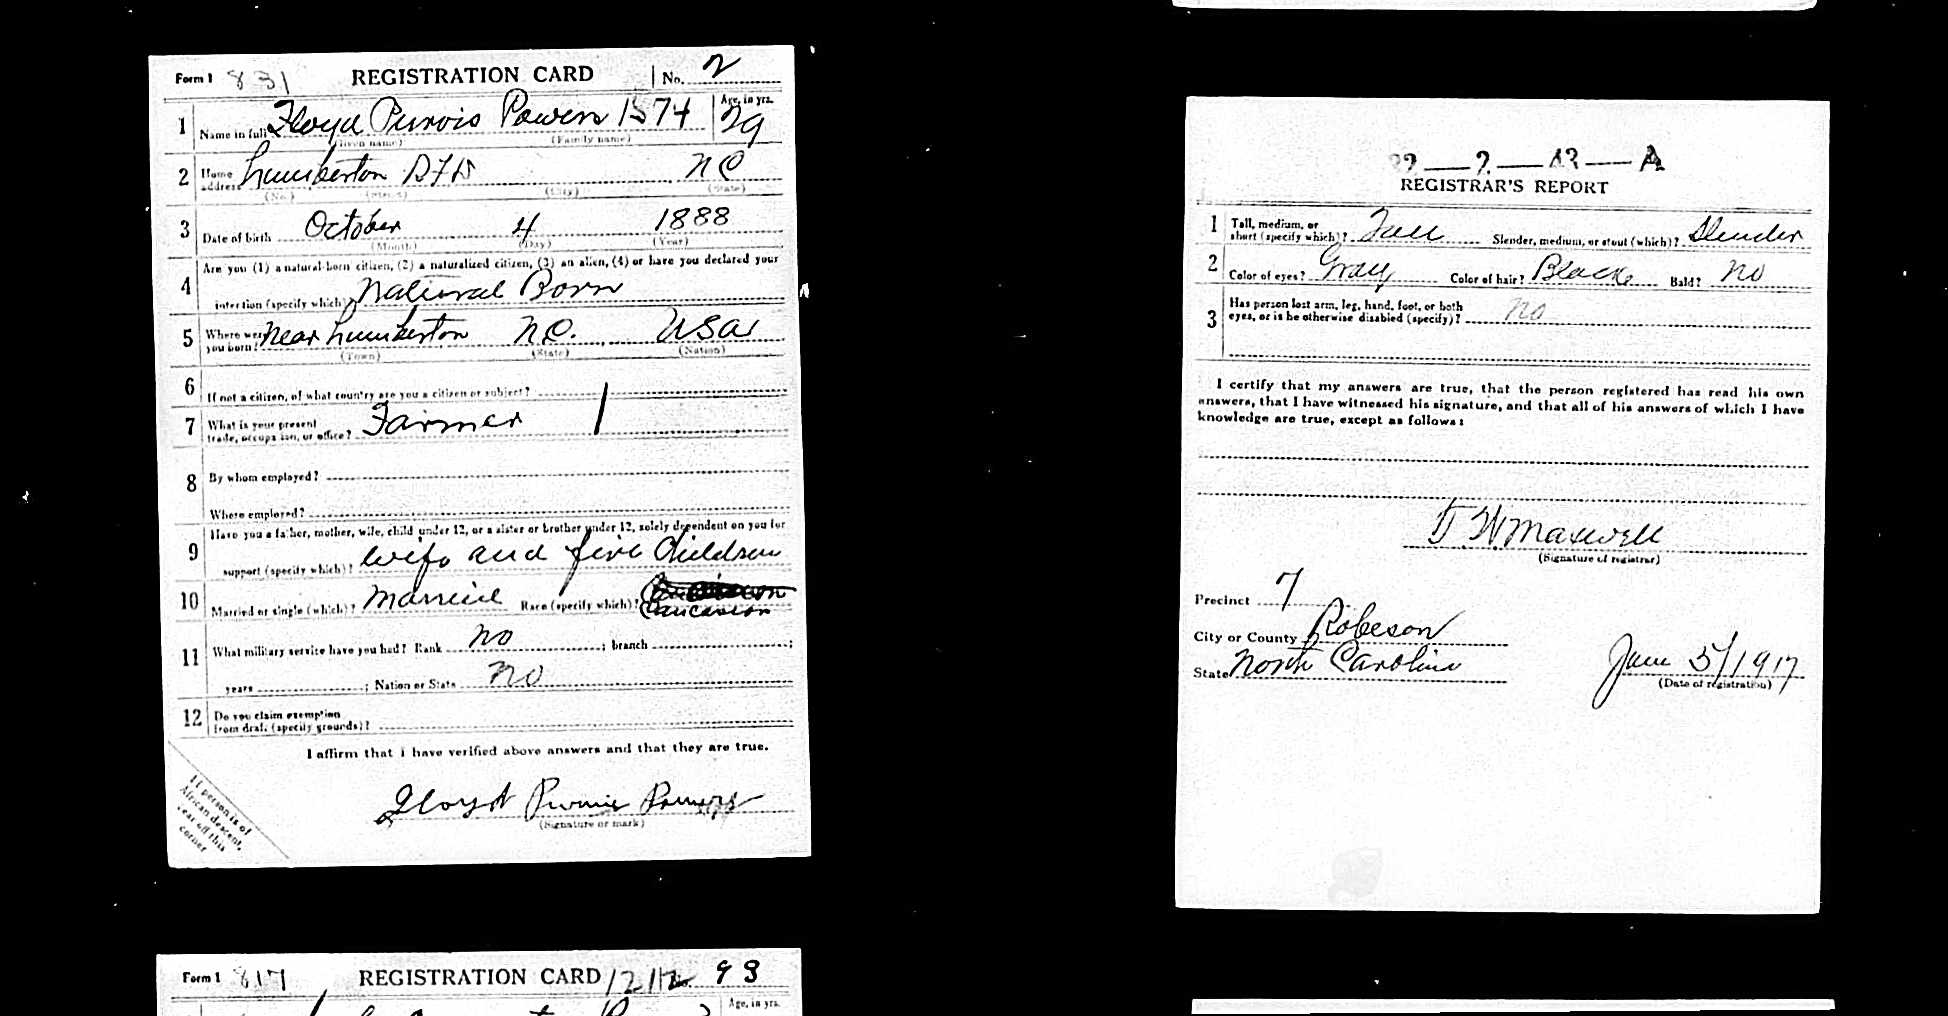 Form 1 831 REGISTRATION CARD No. 2
1 Name in full Floyd Purvis Powers 1574 Age, in yrs. 29
(Given name) (Family name)
2 Home address Lumberton RFD NC
(No.) (Street) (City) (State)
3 Date of birth October 4 1888
(Month) (Day) (Year)
4 Are you (1) a natural-born citizen, (2) a naturalized citizen, (3) an alien, (4) or have you declared your
intention (specify which)? Natural Born
5 Where were you born? Near Lumberton N.C. USA
(Town) (State) (Nation)
6 If not a citizen, of what country are you a citizen or subject?
7 What is your present
trade, occupation, or office? Farmer
8 By whom employed?
Where employed?
9 Have you a father, mother, wife, child under 12, or a sister or brother under 12, solely dependent on you for
support (specify which)? Wife and five Children
10 Married or single (which)? Married Race (specify which)? Caucasion
11 What military service have you had? Rank no ; branch ;
years ; Nation or State no
12 Do you claim exemption
from draft (specify grounds)?
I affirm that I have verified above answers and that they are true.
Floyd Purvis Powers
(Signature or mark)
If person is of
African descent,
tear off this
corner
Form 1 817 REGISTRATION CARD 93
Age, in yrs.
2 A
REGISTRAR'S REPORT
1 Tall, medium, or
short (specify which)? Tall Slender, medium, or stout (which)? Slender
2 Color of eyes? Gray Color of hair? Black Bald? no
3 Has person lost arm, leg, hand, foot, or both
eyes, or is he otherwise disabled (specify)? no
I certify that my answers are true, that the person registered has read his own
answers, that I have witnessed his signature, and that all of his answers of which I have
knowledge are true, except as follows:
W. Maxwell
(Signature of registrar)
Precinct 7
City or County Robeson
State North Carolina
June 5/1917
(Date of registration)